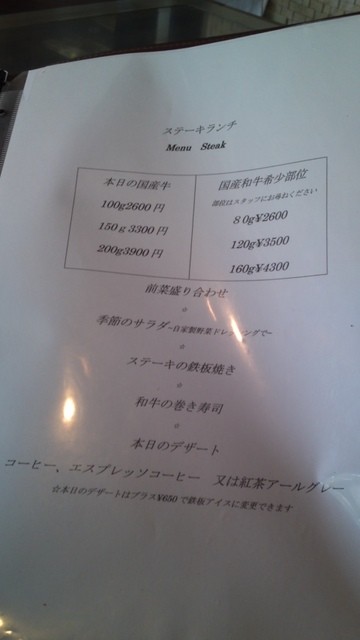 ステーキランチ
Menu Steak
本日の国産牛
100g2600円
150g3300円
200g3900円
国産和牛希少部位
部位はスタッフにお尋ねください
80g¥2600
120g¥3500
160g¥4300
前菜盛り合わせ
☆
季節のサラダ~自家製野菜ドレッシングで~
☆
ステーキの鉄板焼き
☆
和牛の巻き寿司
☆
本日のデザート
コーヒー、エスプレッソコーヒー 又は紅茶アールグレー
☆本日のデザートはプラス¥650で鉄板アイスに変更できます